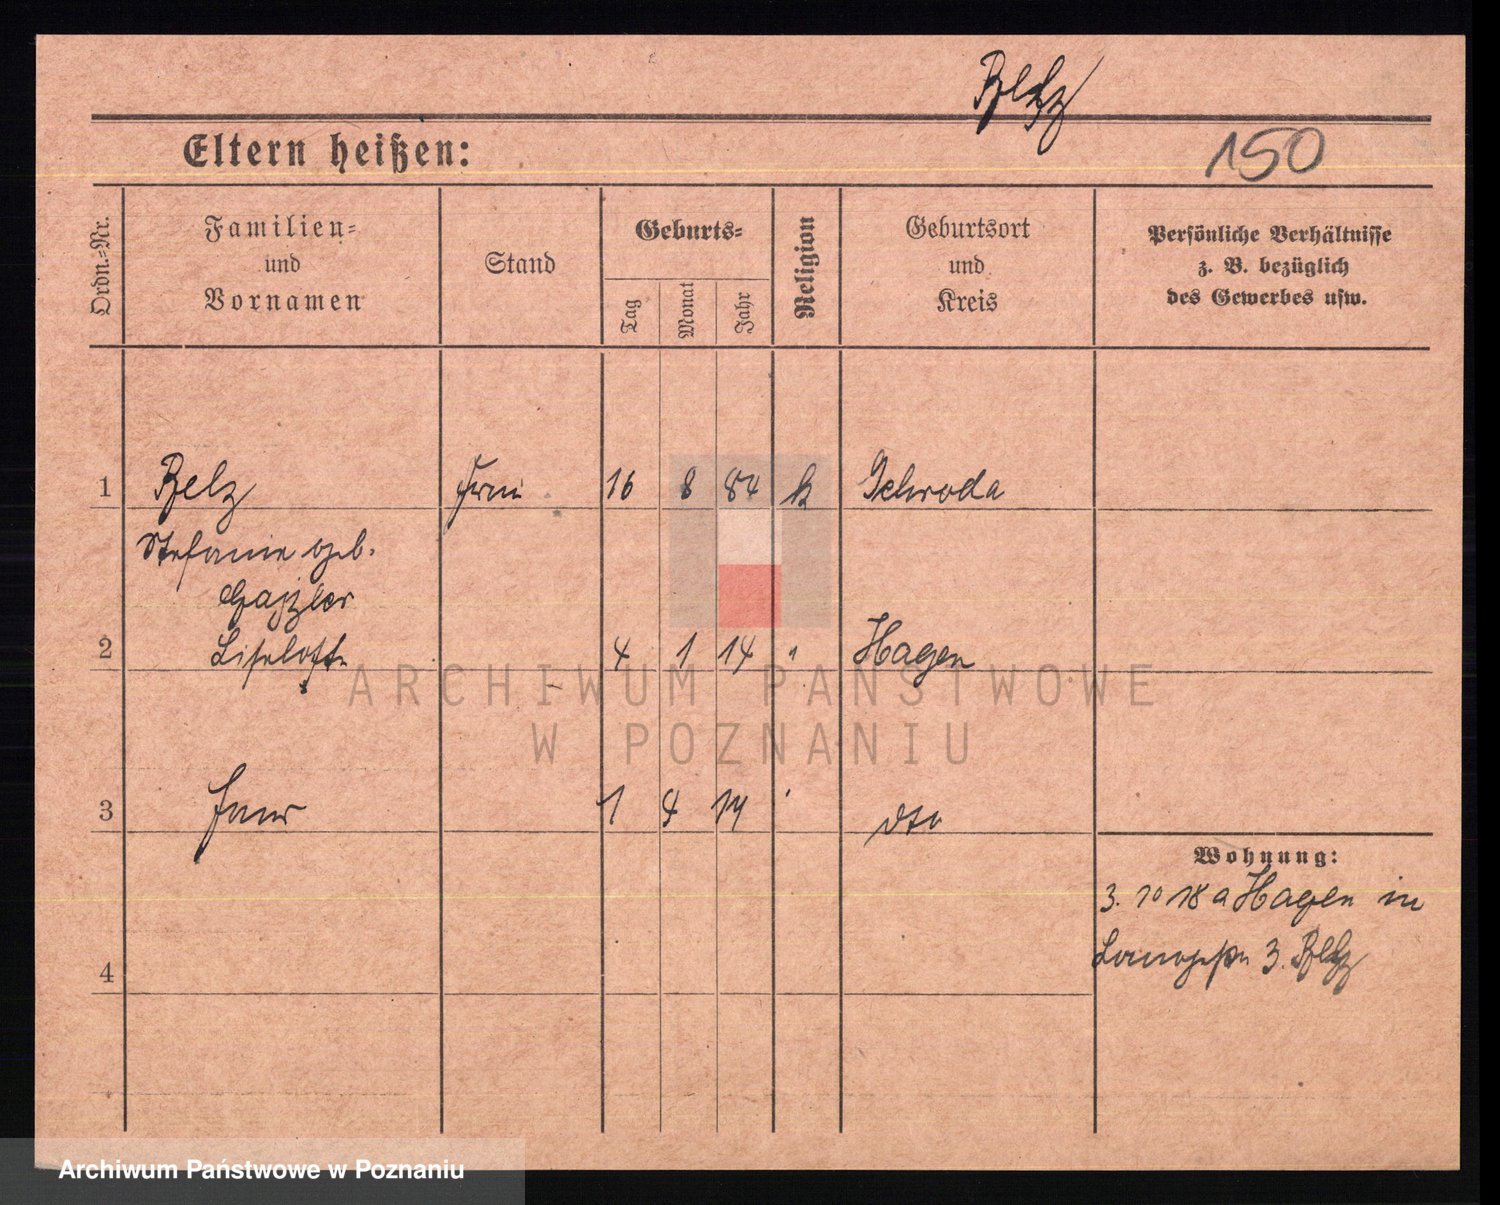 Belz
150
Eltern heißen:
Ordn.-Nr.
Familien-
und
Vornamen
Stand
Geburts-
Tag
Monat
Jahr
Religion
Geburtsort
und
Kreis
Persönliche Verhältnisse
z. B. bezüglich
des Gewerbes usw.
1 Belz 16 8 84 k Schroda
Stefanie geb.
2 Liselotte 4 1 14 " Hagen
3 1 4 14 " dto
Wohnung:
3. 10 18 a Hagen in
3. Belz
4
ARCHIWUM PAŃSTWOWE
W POZNANIU
Archiwum Państwowe w Poznaniu